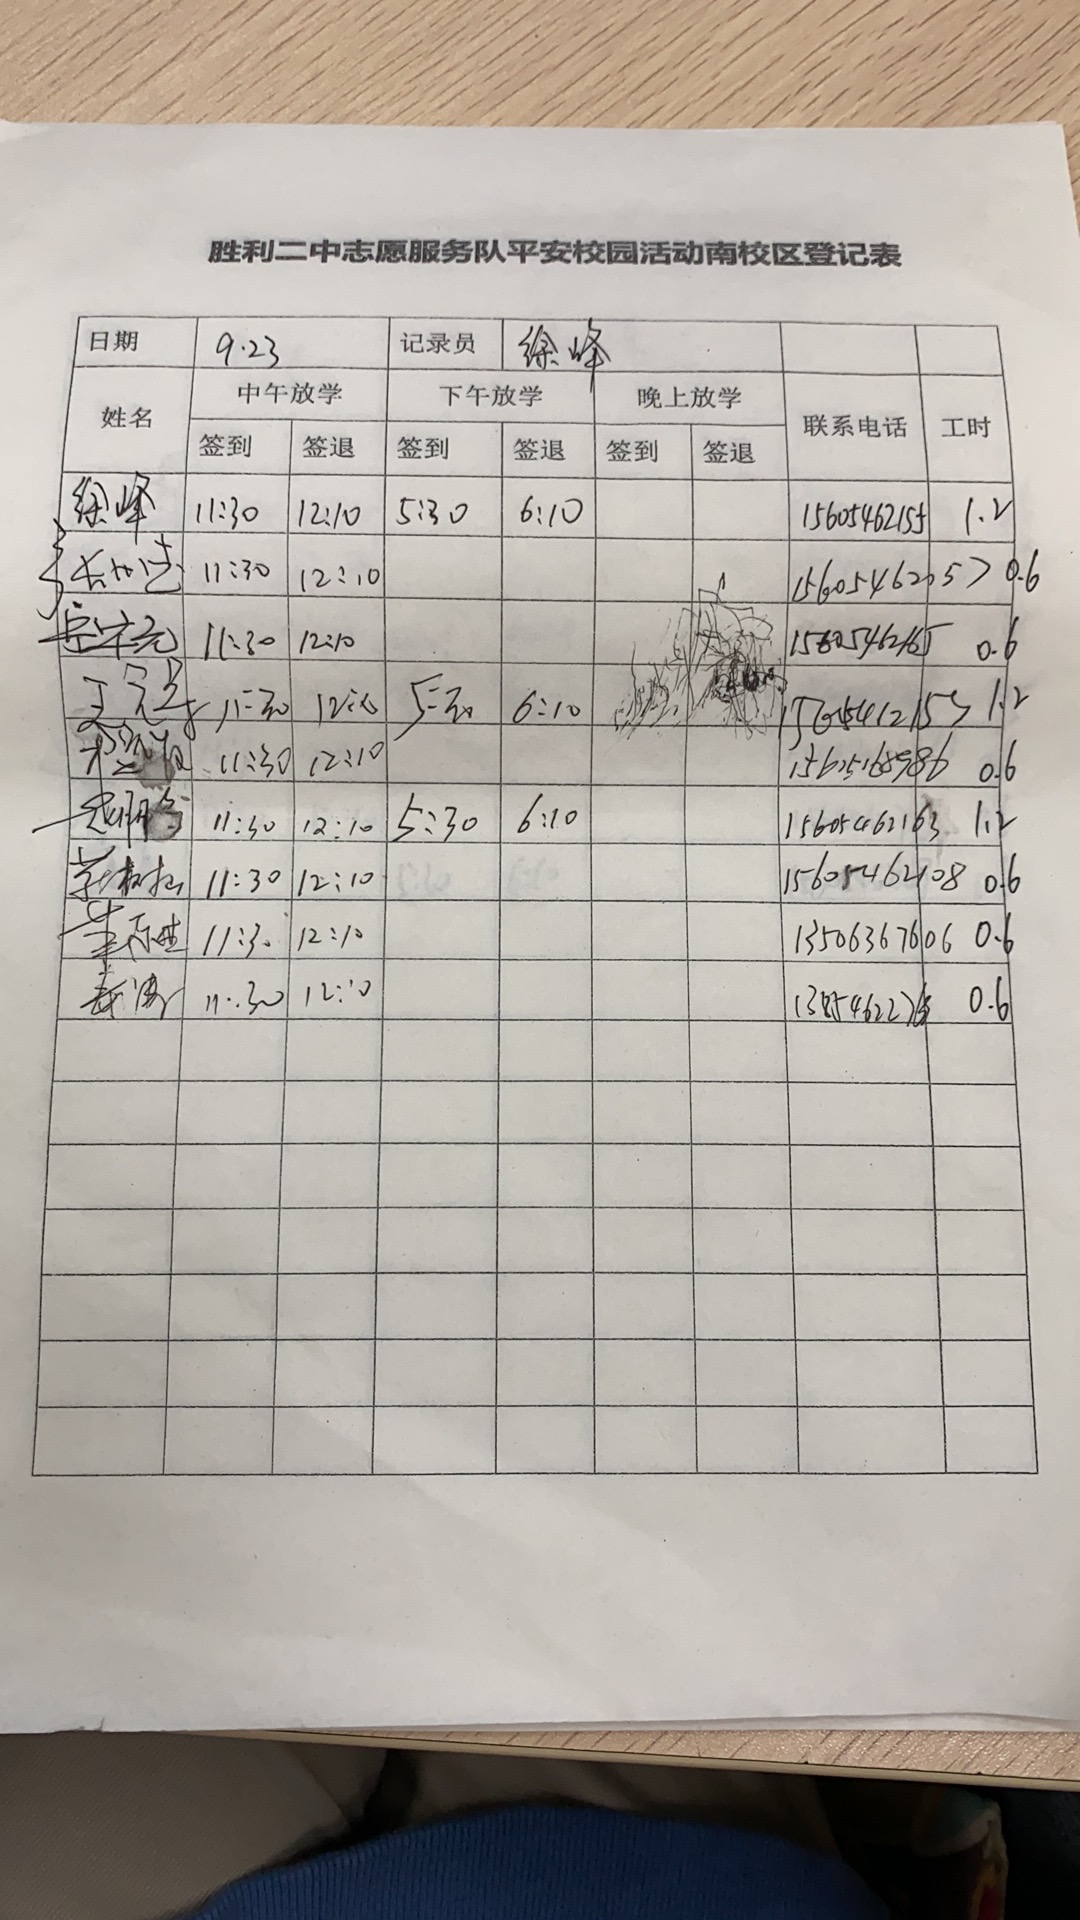 胜利二中志愿服务队平安校园活动南校区登记表
日期 9.23 记录员 徐峰
姓名 中午放学 下午放学 晚上放学 联系电话 工时
签到 签退 签到 签退 签到 签退
徐峰 11:30 12:10 5:30 6:10 15605462155 1.2
11:30 12:10 0.6
11:30 12:10 15605462165 0.6
11:30 12:10 5:30 6:10 1.2
11:30 12:10 0.6
11:30 12:10 5:30 6:10 15605462163 1.2
11:30 12:10 15605462108 0.6
11:30 12:10 13506367606 0.6
11:30 12:10 0.6